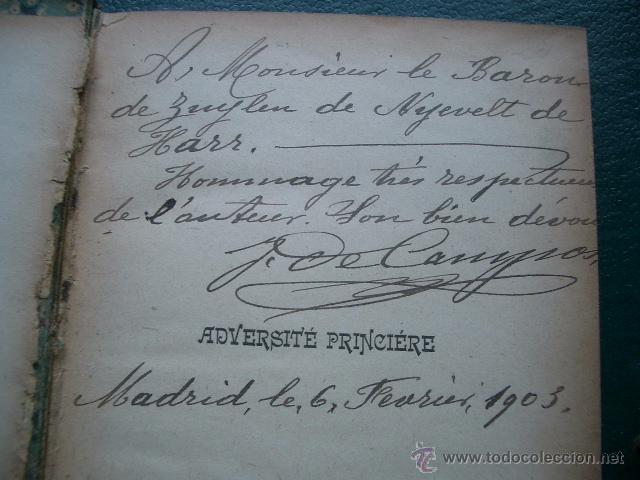 A, Monsieur le Baron
de Zuylen de Nyevelt de
Harr. —
Hommage très respectueu
de l'auteur. Son bien dévou
J. de Campos
ADVERSITÉ PRINCIÉRE
Madrid, le, 6, Fevrier, 1903.
www.todocoleccion.net